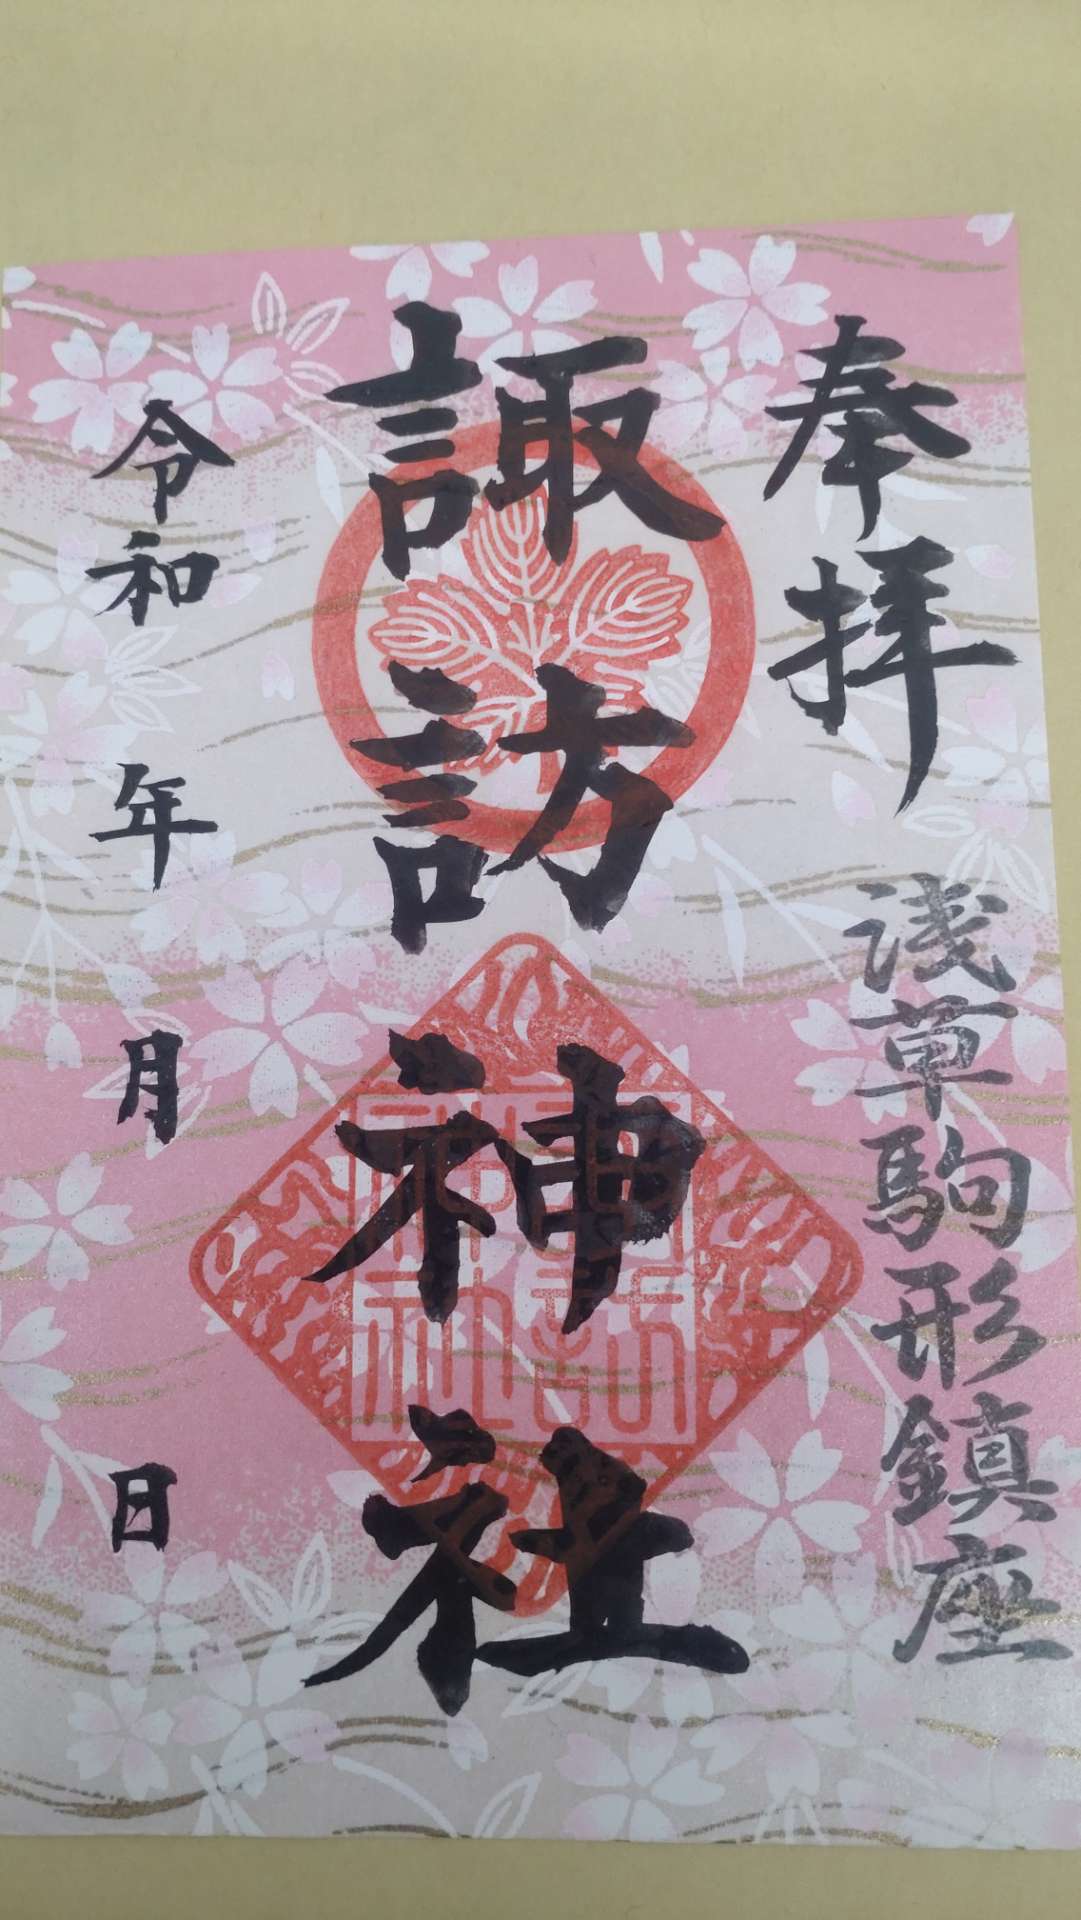 奉拝
浅草駒形鎮座
諏訪神社
諏訪神社
令和 年 月 日